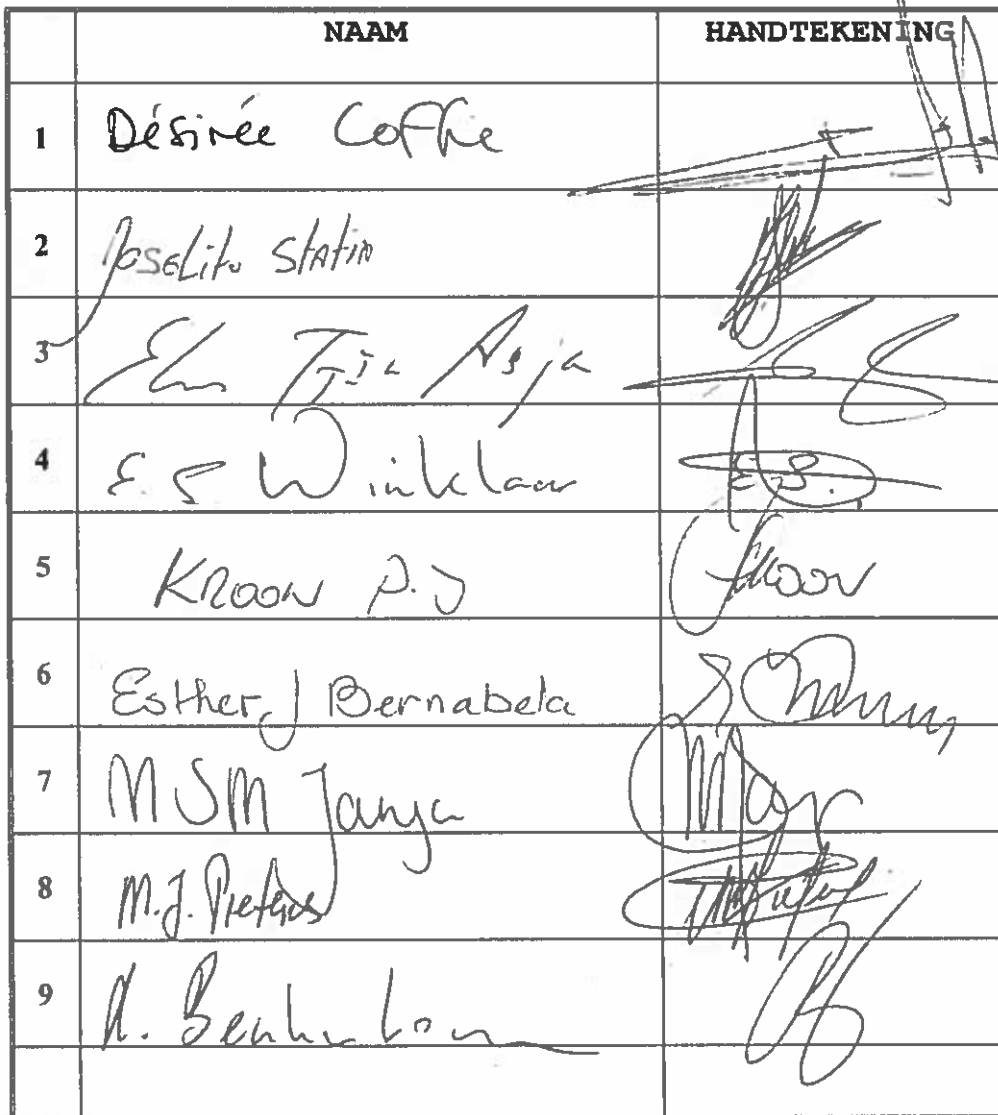 NAAM HANDTEKENING
1 Désirée Coffie
2 Joselito Statia
3 Tjja Asja
4 E S Winklaar E.S.
5 KROON P.J Kroon
6 Esther J Bernabela
7 MSM Janga
8 M.J. Pieters
9